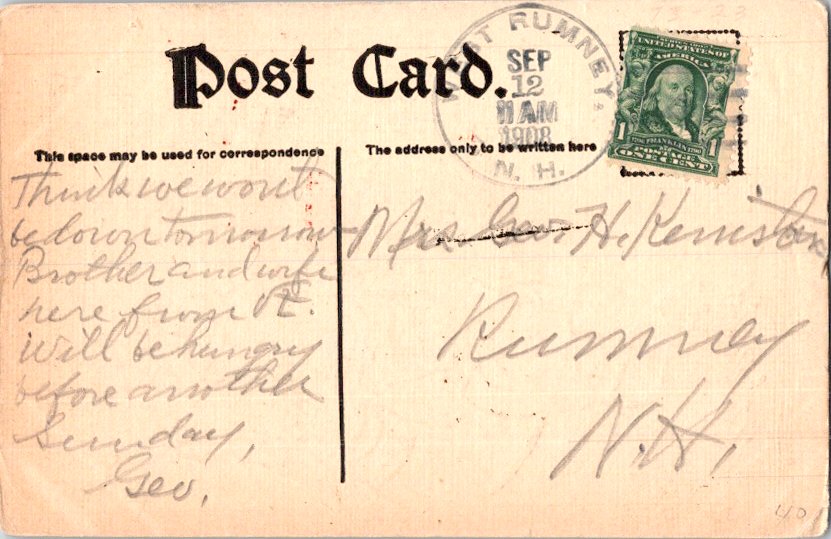 Post Card.
WEST RUMNEY,
SEP
12
11 AM
1908
N. H.
UNITED STATES OF
AMERICA
1 FRANKLIN 1
POSTAGE
ONE CENT
This space may be used for correspondence
The address only to be written here
Think we wont
be down tomorrow
Brother and wife
here from Vt.
Will be hungry
before another
Sunday,
Geo,
Mrs. Geo. H. Kenniston
Rumney
N.H.
40